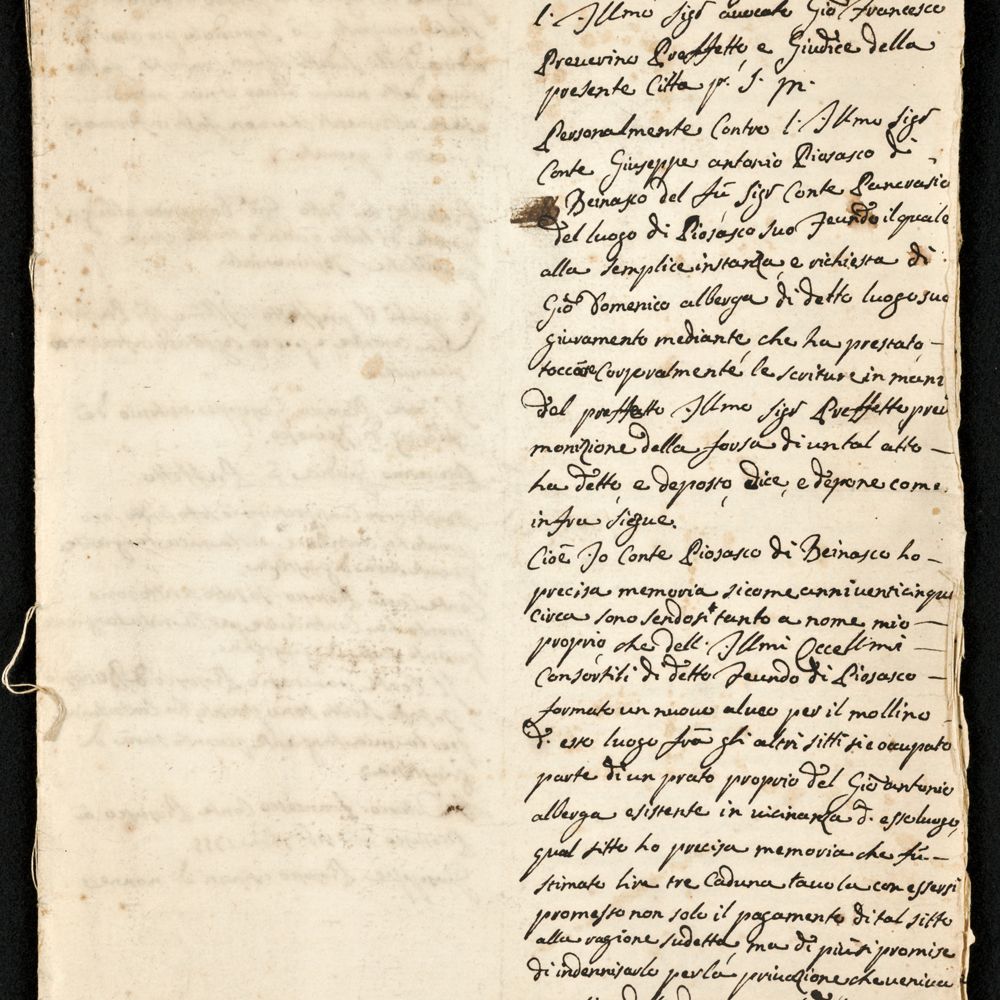 l. Illmo Sigr avocato Gio Francesco
Preverino Preffetto e Giudice della
presente Citta pr. S. M.
Personalmente Contro l. Illmo Sigr
Conte Giuseppe antonio Piosasco di
Beinasco del fù Sigr Conte Pancrasio
del luogo di Piosasco suo Feundo il quale
alla semplice instanza, e richiesta di
Gio Domenico alberga di detto luogo suo
giuramento mediante che ha prestato
toccate Corporalmente le scritture in mani
del preffatto Illmo Sigr Preffetto pre
monizione della forsa di un tal atto
ha detto e deposto, dice, e depone come
infra siegue.
Cioè Io Conte Piosasco di Beinasco ho
precisa memoria sicome anni venticinque
circa sono sendosi tanto a nome mio
proprio che dell. Illmi Eccell.mi
Consortili di detto Feundo di Piosasco
formato un nuovo alveo per il mollino
d. esso luogo frà gli altri sitti si è ocupato
parte di un prato proprio del Gio antonio
alberga esistente in vicinanza d. esso luogo,
qual sitto ho precisa memoria che fù
stimato lire tre Caduna tavola con essersi
promesso non solo il pagamento di tal sitto
alla ragione sudetta, ma di più si promise
di indennisarlo per la privazione che veniva